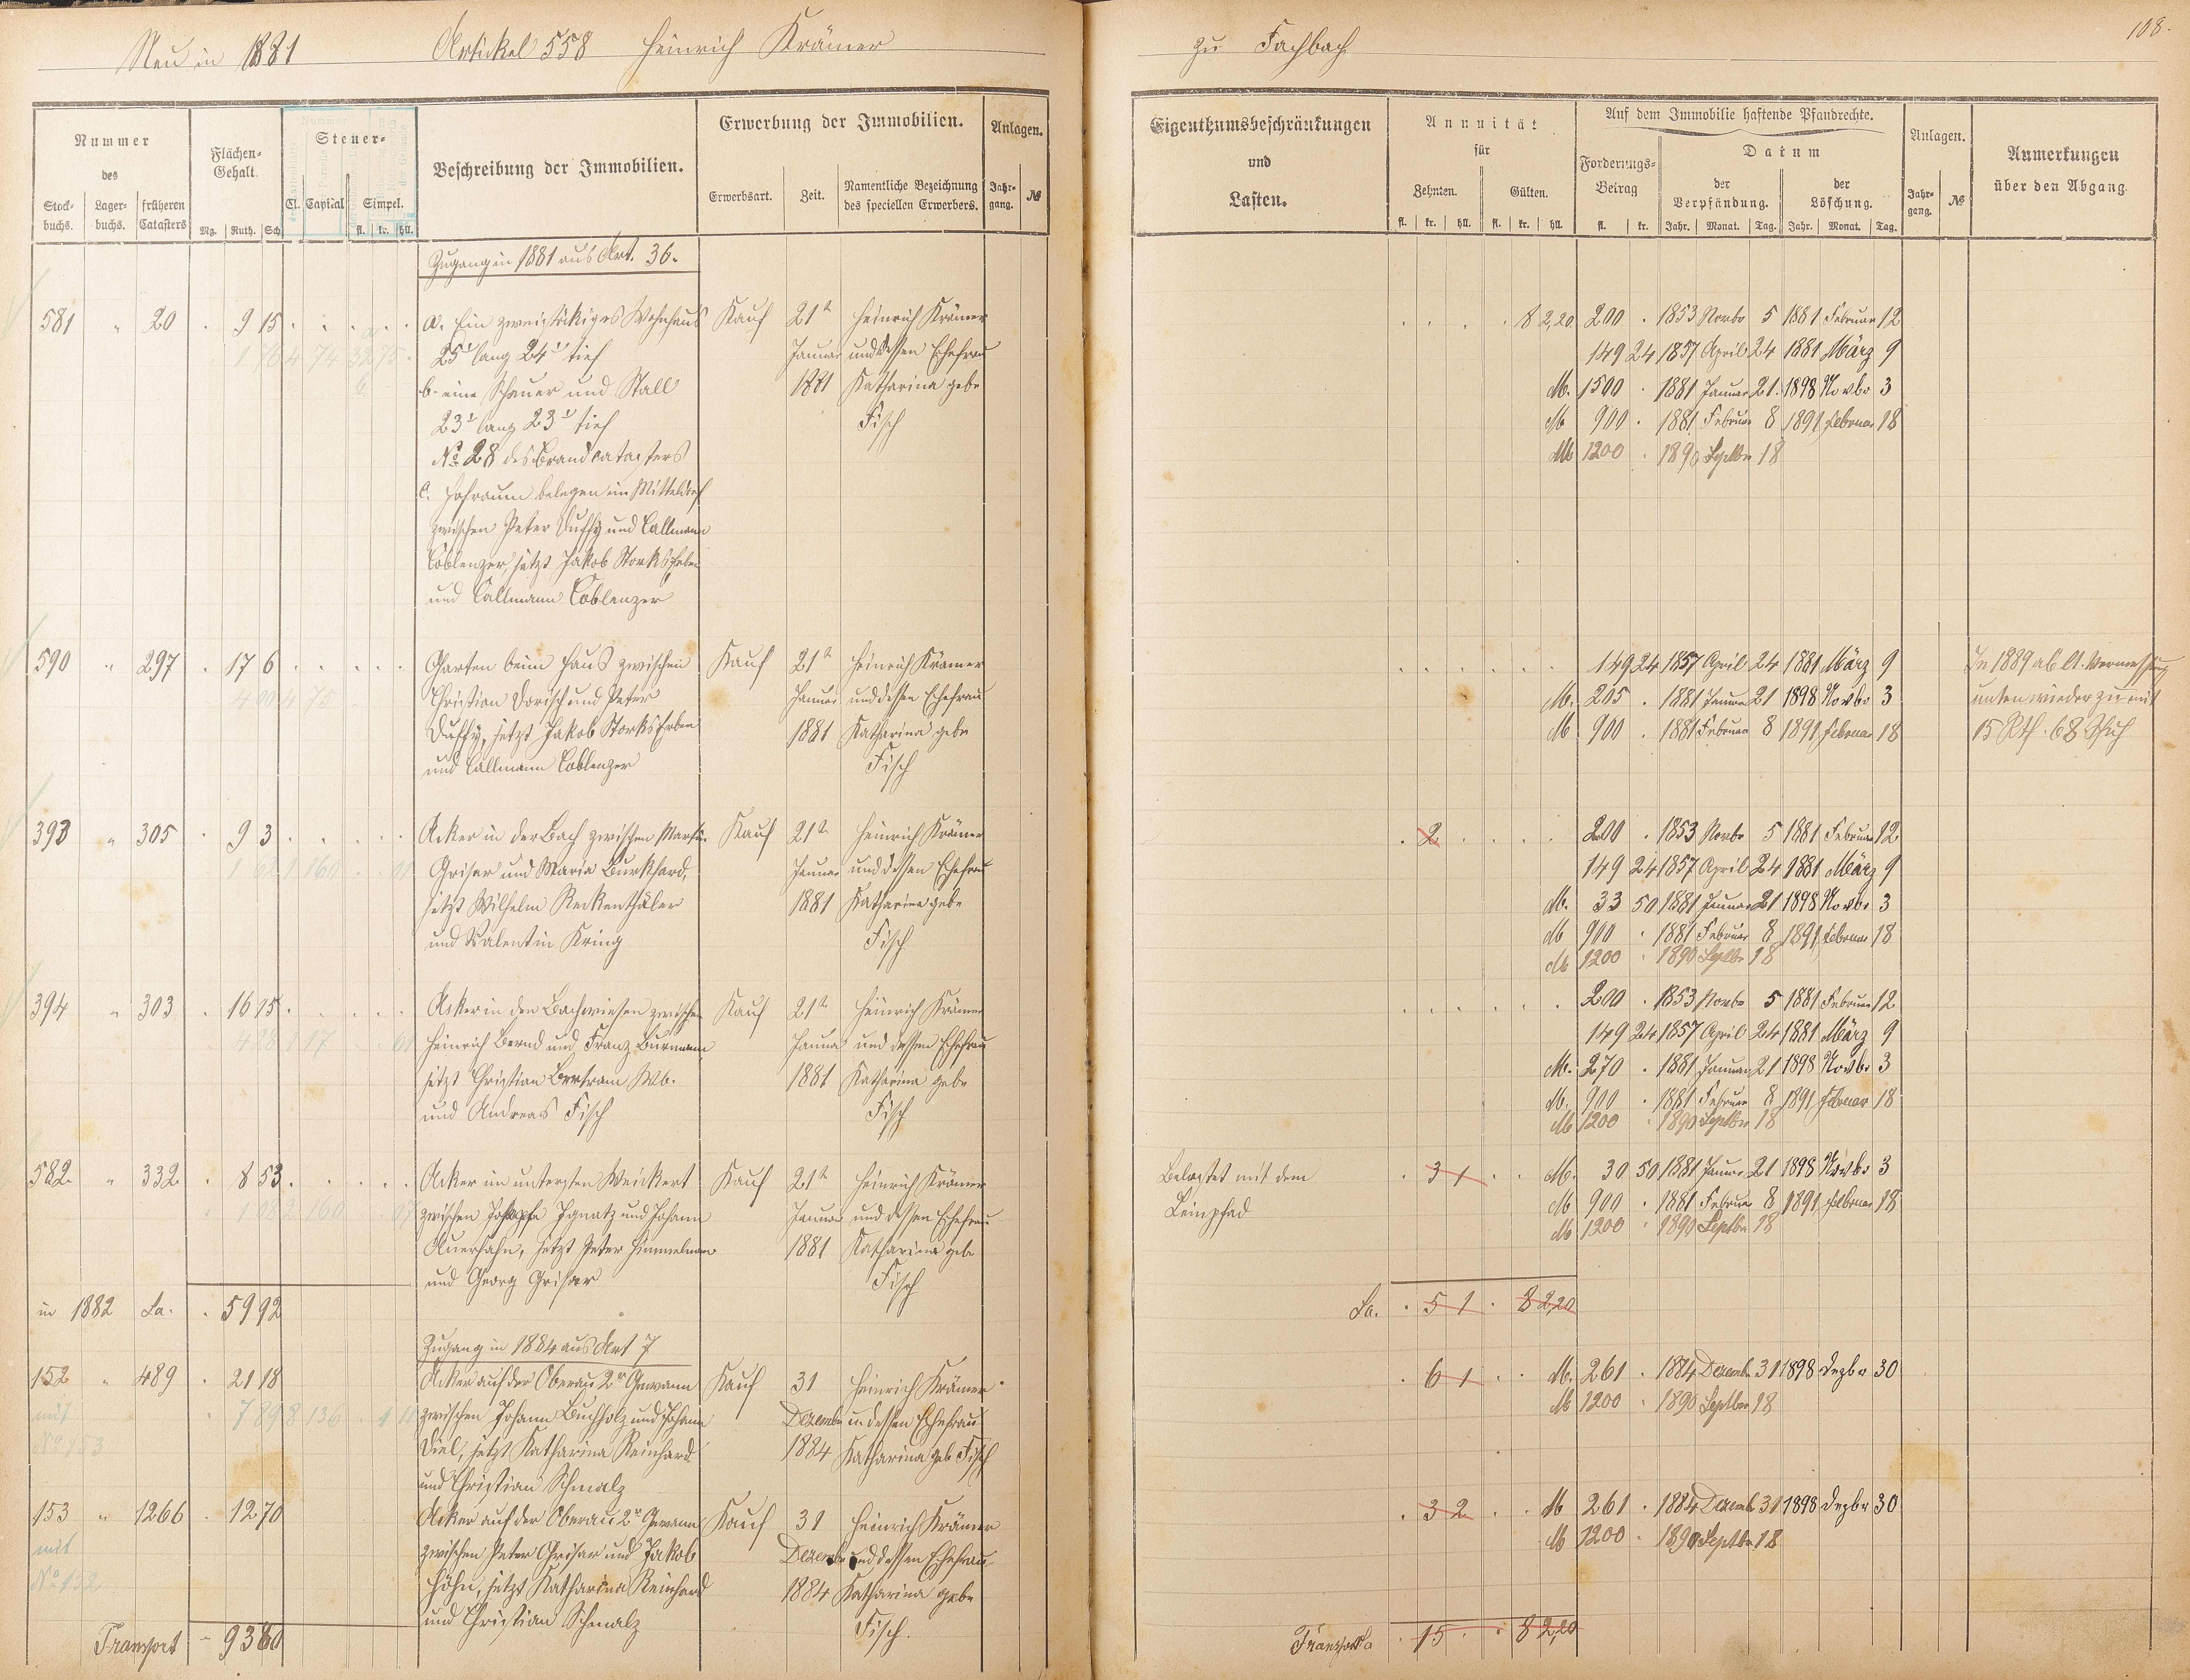 Neu in 1881 Artickel 558 Heinrich Krämer
zu Fachbach
108.
Nummer
des
Stock-
buchs.
Lager-
buchs.
früheren
Catasters
Flächen-
Gehalt.
Mg. Ruth. Sch.
Steuer-
Cl. Capital Simpel.
fl. kr. hll.
Beschreibung der Immobilien.
Erwerbung der Immobilien.
Erwerbsart. Zeit.
Namentliche Bezeichnung
des speciellen Erwerbers.
Anlagen.
Jahr-
gang.
№
Eigenthumsbeschränkungen
und
Lasten.
Annuität
für
Zehnten. Gülten.
fl. kr. hll. fl. kr. hll.
Auf dem Immobilie haftende Pfandrechte.
Forderungs-
Betrag
fl. kr.
Datum
der
Verpfändung.
der
Löschung.
Jahr. Monat. Tag. Jahr. Monat. Tag.
Anlagen.
Jahr-
gang.
№
Anmerkungen
über den Abgang.
Zugang in 1881 aus Art. 36.
581 " 20 . 9 15 a. Ein zweistöckiges Wohnhaus Kauf 21t Heinrich Krämer
25' lang 24' tief Januar und dessen Ehefrau
b. eine Scheuer und Stall 1881 Katharina gebe
23' lang 23' tief Fisch
No 28 des Brandcatasters
c. Hofraum belegen im Mitteldorf
zwischen Peter Duffy und Callmann
Coblenzer, jetzt Jakob Storks Erben
und Callmann Coblenzer
8 2,20 200 . 1853 Novbr 5 1881 Februar 12
149 24 1857 April 24 1881 März 9
M. 1500 . 1881 Januar 21. 1898 Novbr 3
M 900 . 1881 Februar 8 1891 Februar 18
M 1200 . 1890 Septbr 18
590 " 297 . 17 6 Garten beim Haus zwischen Kauf 21t Heinrich Krämer
Christian Dorisch und Peter Januar und dessen Ehefrau
Duffy, jetzt Jakob Storks Erben 1881 Katharina gebe
und Callmann Coblenzer Fisch
149 24 1857 April 24 1881 März 9
M. 205 . 1881 Januar 21 1898 Novbr 3
M 900 . 1881 Februar 8 1891 Februar 18
In 1889 ab lt. Vermessung
unten wieder zu mit
15 Rth. 68 Schuh
393 " 305 . 9 3 Acker in der Bach zwischen Martin Kauf 21t Heinrich Krämer
Grisar und Maria Burkhard, Januar und dessen Ehefrau
jetzt Wilhelm Reckenthäler 1881 Katharina gebe
und Valentin Kring Fisch
. 2 200 . 1853 Novbr 5 1881 Februar 12
149 24 1857 April 24 1881 März 9
M. 33 50 1881 Januar 21 1898 Novbr 3
M 900 . 1881 Februar 8 1891 Februar 18
M 1200 . 1890 Septbr 18
394 " 303 . 16 15 Acker in den Bachwiesen zwischen Kauf 21t Heinrich Krämer
Heinrich Bernd und Franz Burmann Januar und dessen Ehefrau
jetzt Christian Bertram Wb. 1881 Katharina gebe
und Andreas Fisch Fisch
200 . 1853 Novbr 5 1881 Februar 12
149 24 1857 April 24 1881 März 9
M. 270 . 1881 Januar 21 1898 Novbr 3
M. 900 . 1881 Februar 8 1891 Februar 18
M 1200 . 1890 Septbr 18
582 " 332 . 8 53 Acker im untersten Weickert Kauf 21t Heinrich Krämer
zwischen Ignatz und Johann Januar und dessen Ehefrau
Auerhahn, jetzt Peter Himmelmann 1881 Katharina gebe
und Georg Grisar Fisch
Belastet mit dem
Leinpfad
. 3 1 M. 30 50 1881 Januar 21 1898 Novbr 3
M 900 . 1881 Februar 8 1891 Februar 18
M 1200 . 1890 Septbr 18
in 1882 Sa. . 59 92
Sa. . 5 1 . 8 2,20
Zugang in 1884 aus Art 7
152 " 489 . 21 18 Acker auf der Oberau 2r Gewann Kauf 31 Heinrich Krämer
mit zwischen Johann Buchholz und Johann Dezembr u dessen Ehefrau
No 153 Diel, jetzt Katharina Reinhard 1884 Katharina geb Fisch
und Christian Schmalz
. 6 1 M. 261 . 1884 Dezembr 31 1898 Dezbr 30
M 1200 . 1890 Septbr 18
153 " 1266 . 12 70 Acker auf der Oberau 2r Gewann Kauf 31 Heinrich Krämer
mit zwischen Peter Grisar und Jakob Dezembr und dessen Ehefrau
No 152. Höhn, jetzt Katharina Reinhard 1884 Katharina gebe
und Christian Schmalz Fisch.
. 3 2 M 261 . 1884 Dezembr 31 1898 Dezbr 30
M 1200 . 1890 Septbr 18
Transport - 93 80
Transport Sa . 15 . . 8 2,20